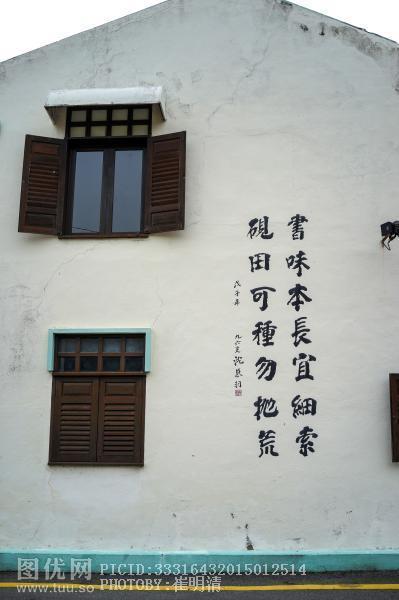 書味本長宜細索
硯田可種勿拋荒
戊子年
九六叟 沈慕羽
图优网 PICID:33316432015012514
www.tuu.so PHOTOBY:崔明清